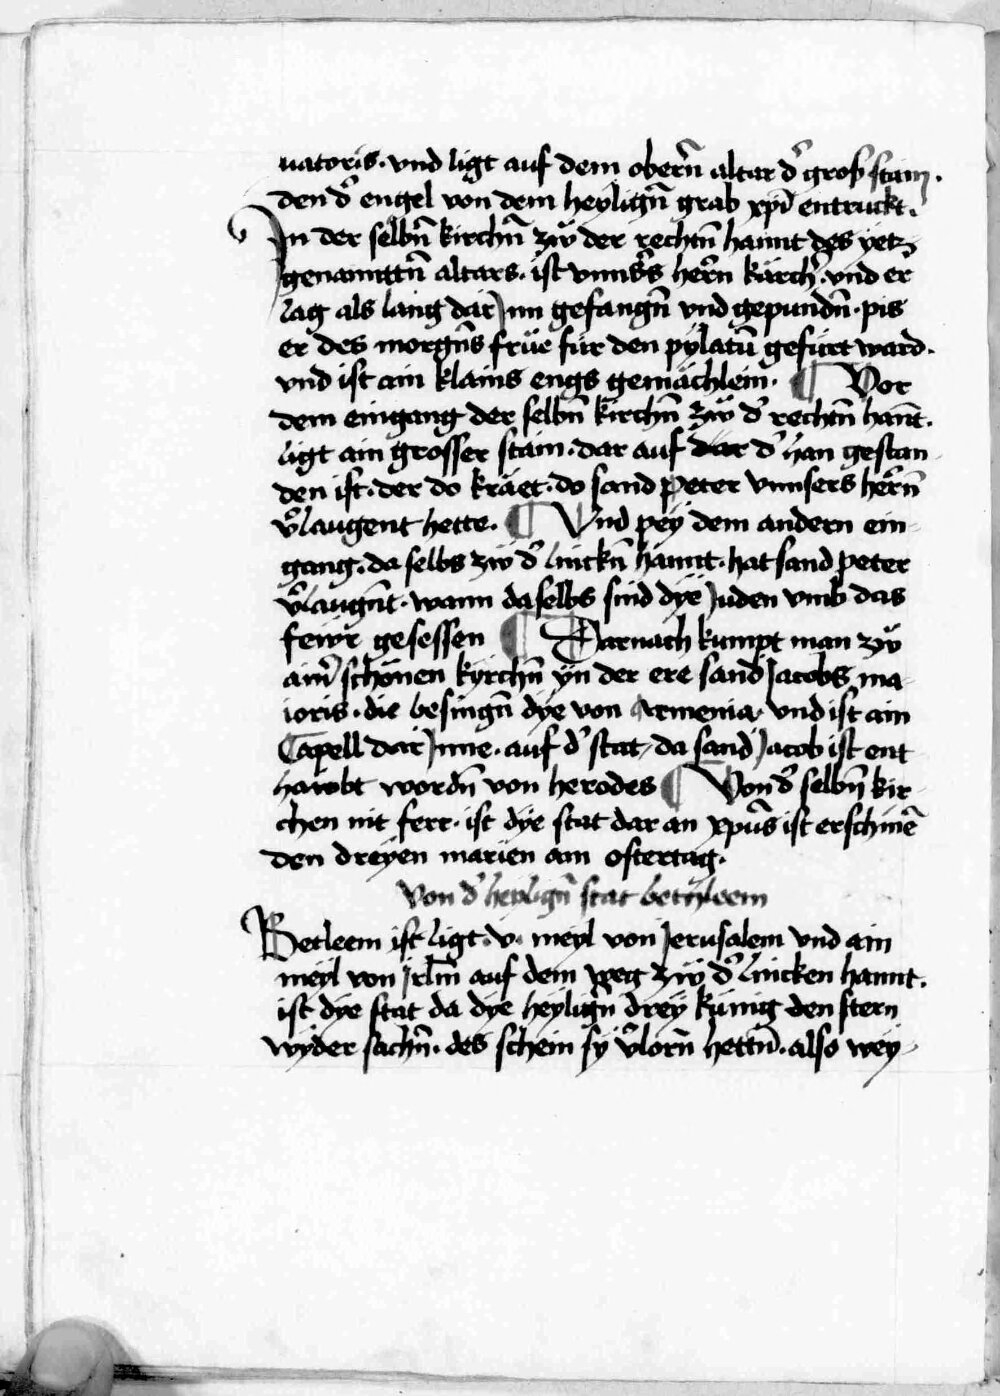 uatoris · vnd ligt auf dem obern̄ altar d' groß stain ·
den d' engel von dem heylign̄ grab xp̄i entruckt ·
In der selbn̄ kirchn̄ zw̎ der rechtn̄ hannt des yetz
genannttn̄ altars · ist vnns's hern̄ kärch' · vnd er
lag als lang dar Jnn gefangn̄ vnd gepundn̄ · pis
er des morgn̄s frúe für den pylatū gefürt ward ·
vnd ist ain klains engs gemächlein · ¶ Vor
dem eingang der selbn̄ kirchn̄ zw̎ d' rechtn̄ han̄t ·
ligt ain grosser stain · dar auf dar d' han gestan-
den ist · der do kräet · do sand peter vnnsers hern̄
v'laugent hette · ¶ Vnd pey dem andern ein-
gang · da selbs zw̎ d' linckn̄ hannt · hat sand peter
v'laugn̄t · wann daselbs sind dÿe Juden vmb das
fewr gesessen ¶ Darnach kumpt man zw̎
aim' schönen kyrchn̄ yn der ere sand Jacobs ma-
ioris · die besingn̄ dÿe von Armenia · vnd ist ain
Capell dar Jnne · auf d' stat · da sand Jacob ist ent-
hawbt wordn̄ von herodes ¶ Von d' selbn̄ kir-
chen nit ferr · ist dÿe stat dar an xpūs ist erschinē
den dreyen marien am ostertag ·
Von d' heylign̄ stat bethleem
Betleem ist ligt · v · meyl von Jerusalem vnd ain
meyl von Jrlm̄ auf dem weg zw̎ d' lincken hannt ·
ist dÿe stat da dÿe heylign̄ drey künig den stern
wyder sachn̄ · des schein sy v'lorn̄ hettn̄ · also wey-